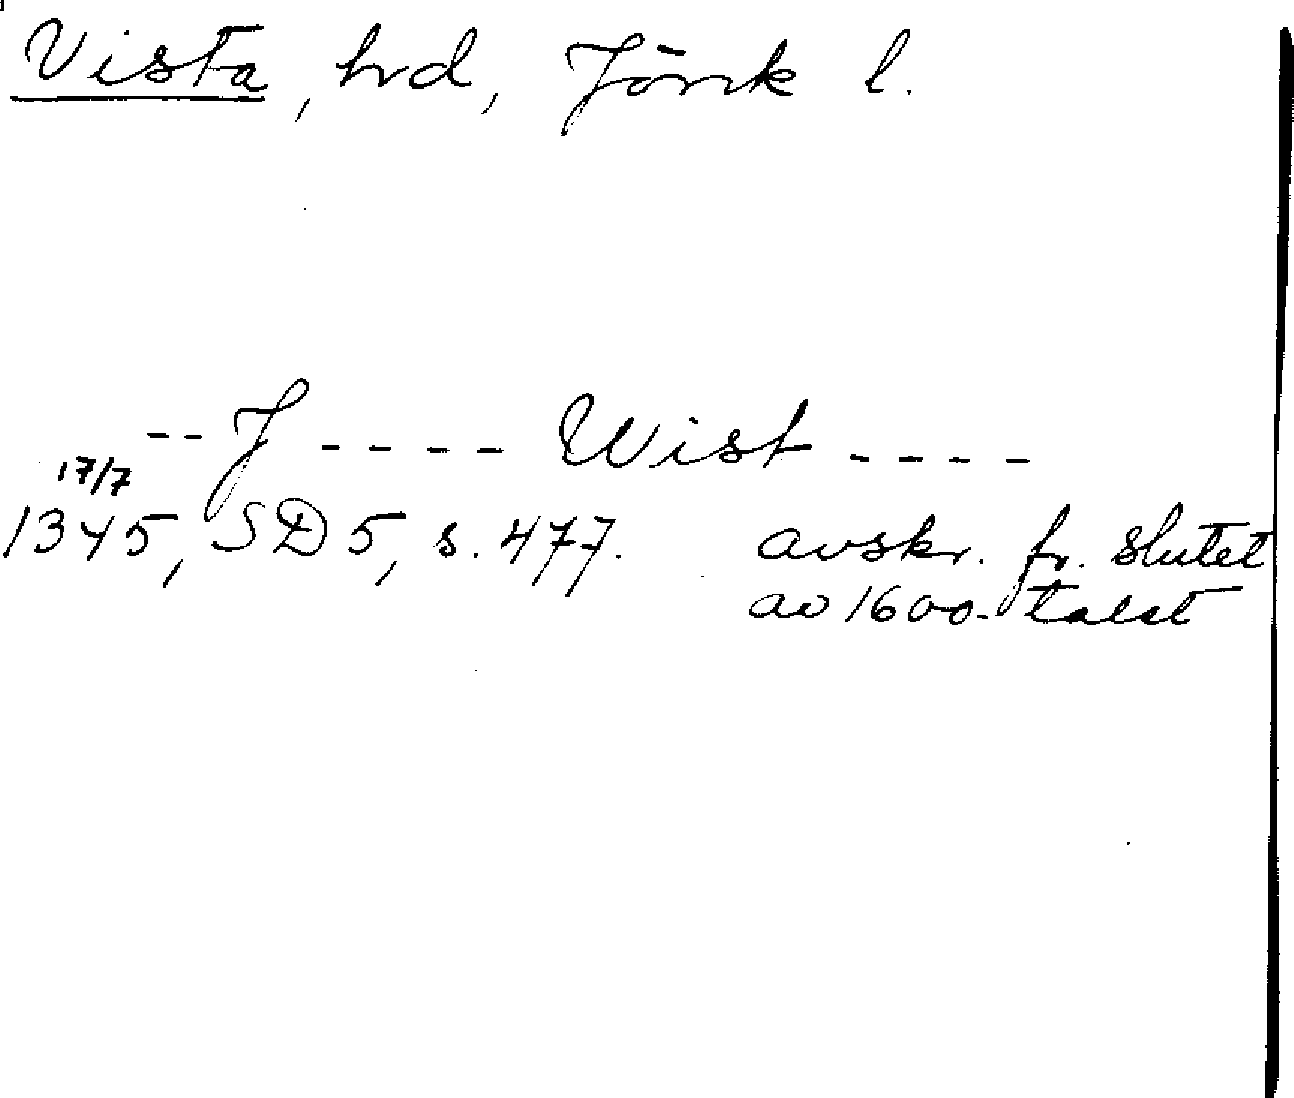 Vista, hrd, Jönk l.
-- J ---- Wist ----
17/7
1345, SD 5, s. 477. avskr. fr. slutet
av 1600-talet